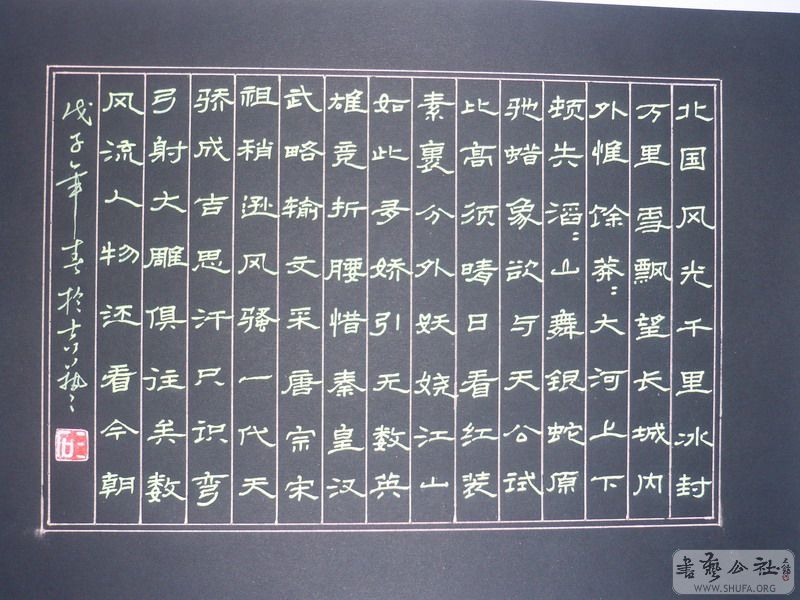 北国风光千里冰封
万里雪飘望长城内
外惟馀莽:大河上下
顿失滔:山舞银蛇原
驰蜡象欲与天公试
比高须晴日看红装
素裹分外妖娆江山
如此多娇引无数英
雄竞折腰惜秦皇汉
武略输文采唐宗宋
祖稍逊风骚一代天
骄成吉思汗只识弯
弓射大雕俱往矣数
风流人物还看今朝
戊子年春於
書藝公社
WWW.SHUFA.ORG